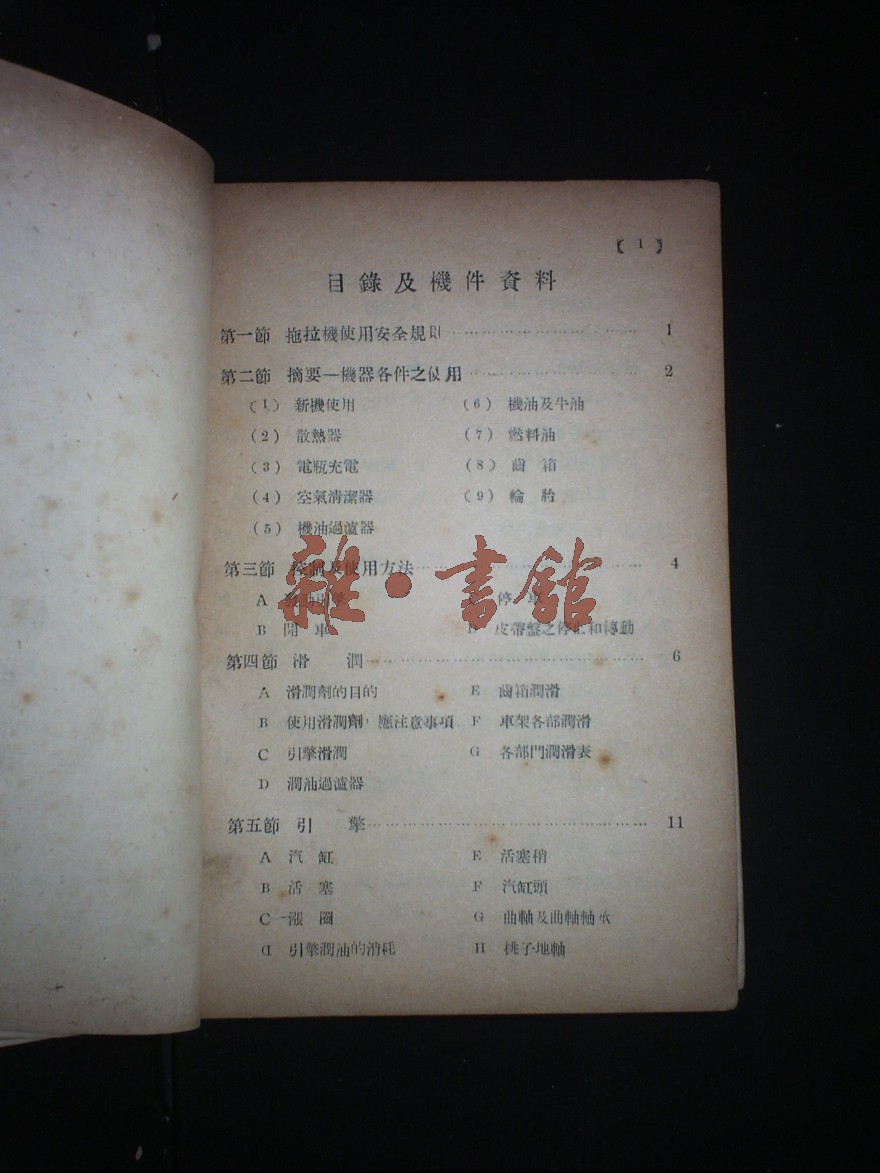 【1】
目錄及機件資料
第一節 拖拉機使用安全規則 1
第二節 摘要—機器各件之使用 2
(1) 新機使用 (6) 機油及牛油
(2) 散熱器 (7) 燃料油
(3) 電瓶充電 (8) 齒 箱
(4) 空氣清潔器 (9) 輪 胎
(5) 機油過濾器
第三節 控制及使用方法 4
雜·書館
A 動引擎 停車
B 開 車 D 皮帶盤之停止和轉動
第四節 滑 潤 6
A 滑潤劑的目的 E 齒箱潤滑
B 使用滑潤劑,應注意事項 F 車架各部潤滑
C 引擎滑潤 G 各部門潤滑表
D 潤油過濾器
第五節 引 擎 11
A 汽 缸 E 活塞稍
B 活 塞 F 汽缸頭
C 漲 圈 G 曲軸及曲軸軸承
D 引擎潤油的消耗 H 桃子地軸